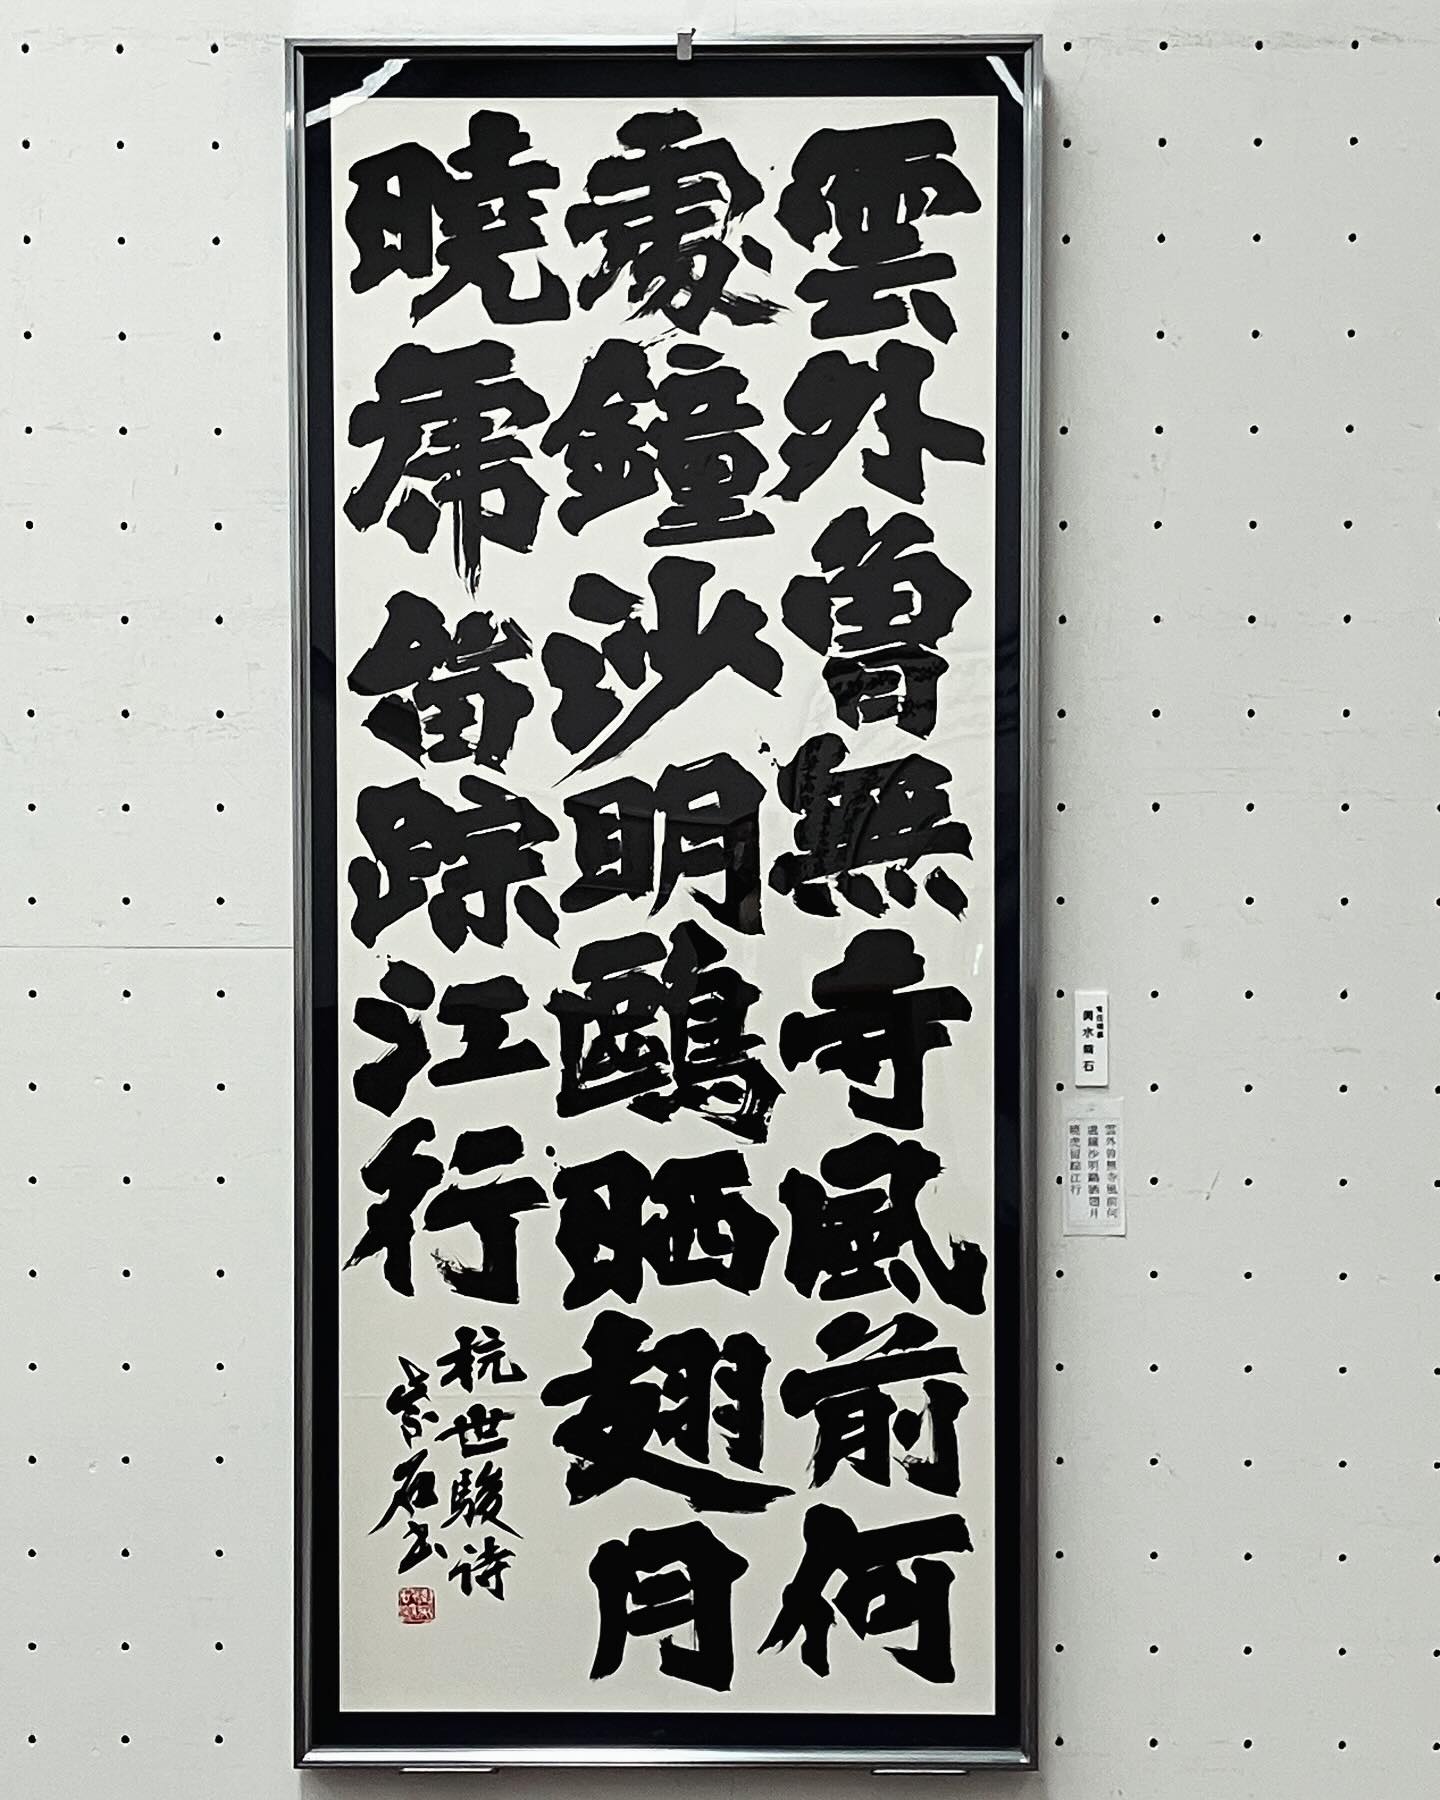 雲外曾無寺風前何
處鐘沙明鷗晒翅月
曉虎留踪江行
杭世駿詩
崇石書
雲外曾無寺風前何
處鐘沙明鷗晒翅月
曉虎留踪江行